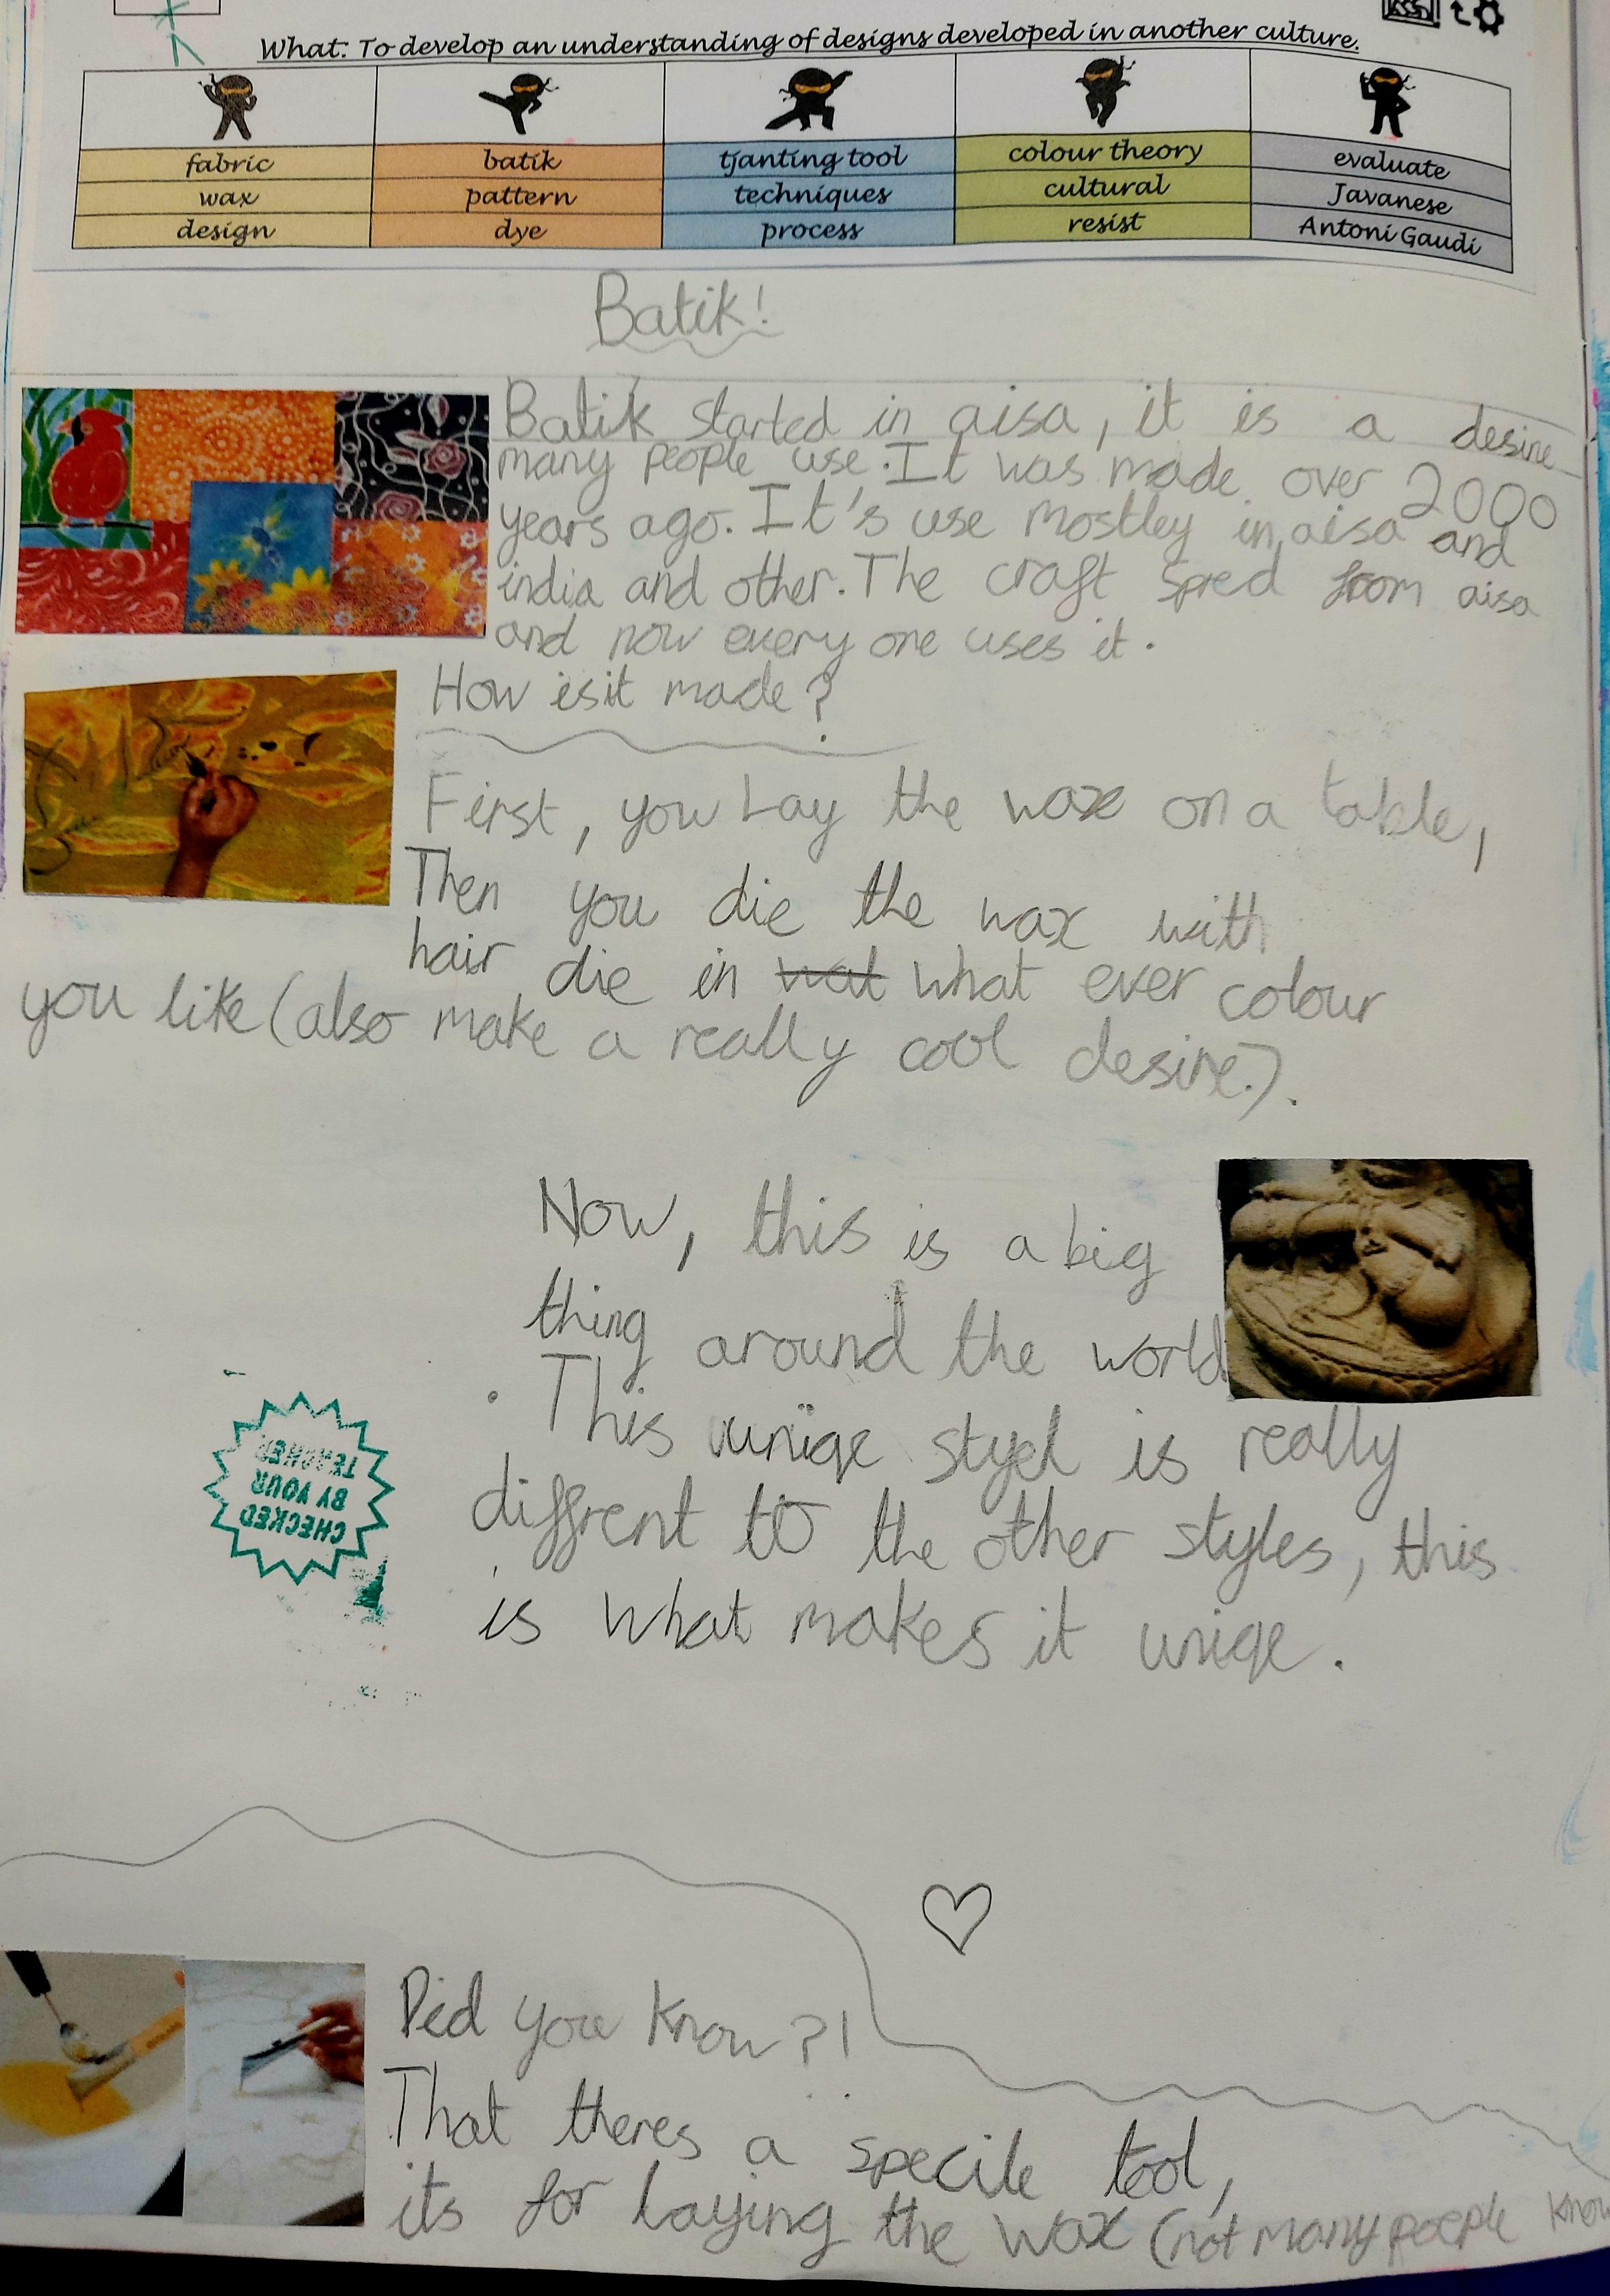 What: To develop an understanding of designs developed in another culture.
fabric batik tjanting tool colour theory evaluate
wax pattern techniques cultural Javanese
design dye process resist Antoni Gaudi
Batik!
Batik started in aisa, it is a desine
many people use. It was made over 2000
years ago. It's use mostley in aisa and
india and other. The craft spred from aisa
and now every one uses it.
How isit made?
First, you Lay the wax on a table,
Then you die the wax with
hair die in wat what ever colour
you like (also make a really cool desine.).
Now, this is a big
thing around the world
. This uniqe styel is really
diffrent to the other styles, this
is what makes it uniqe.
CHECKED
BY YOUR
TEACHER
Did you know?!
That theres a specile tool,
its for laying the wax (not many poeple know